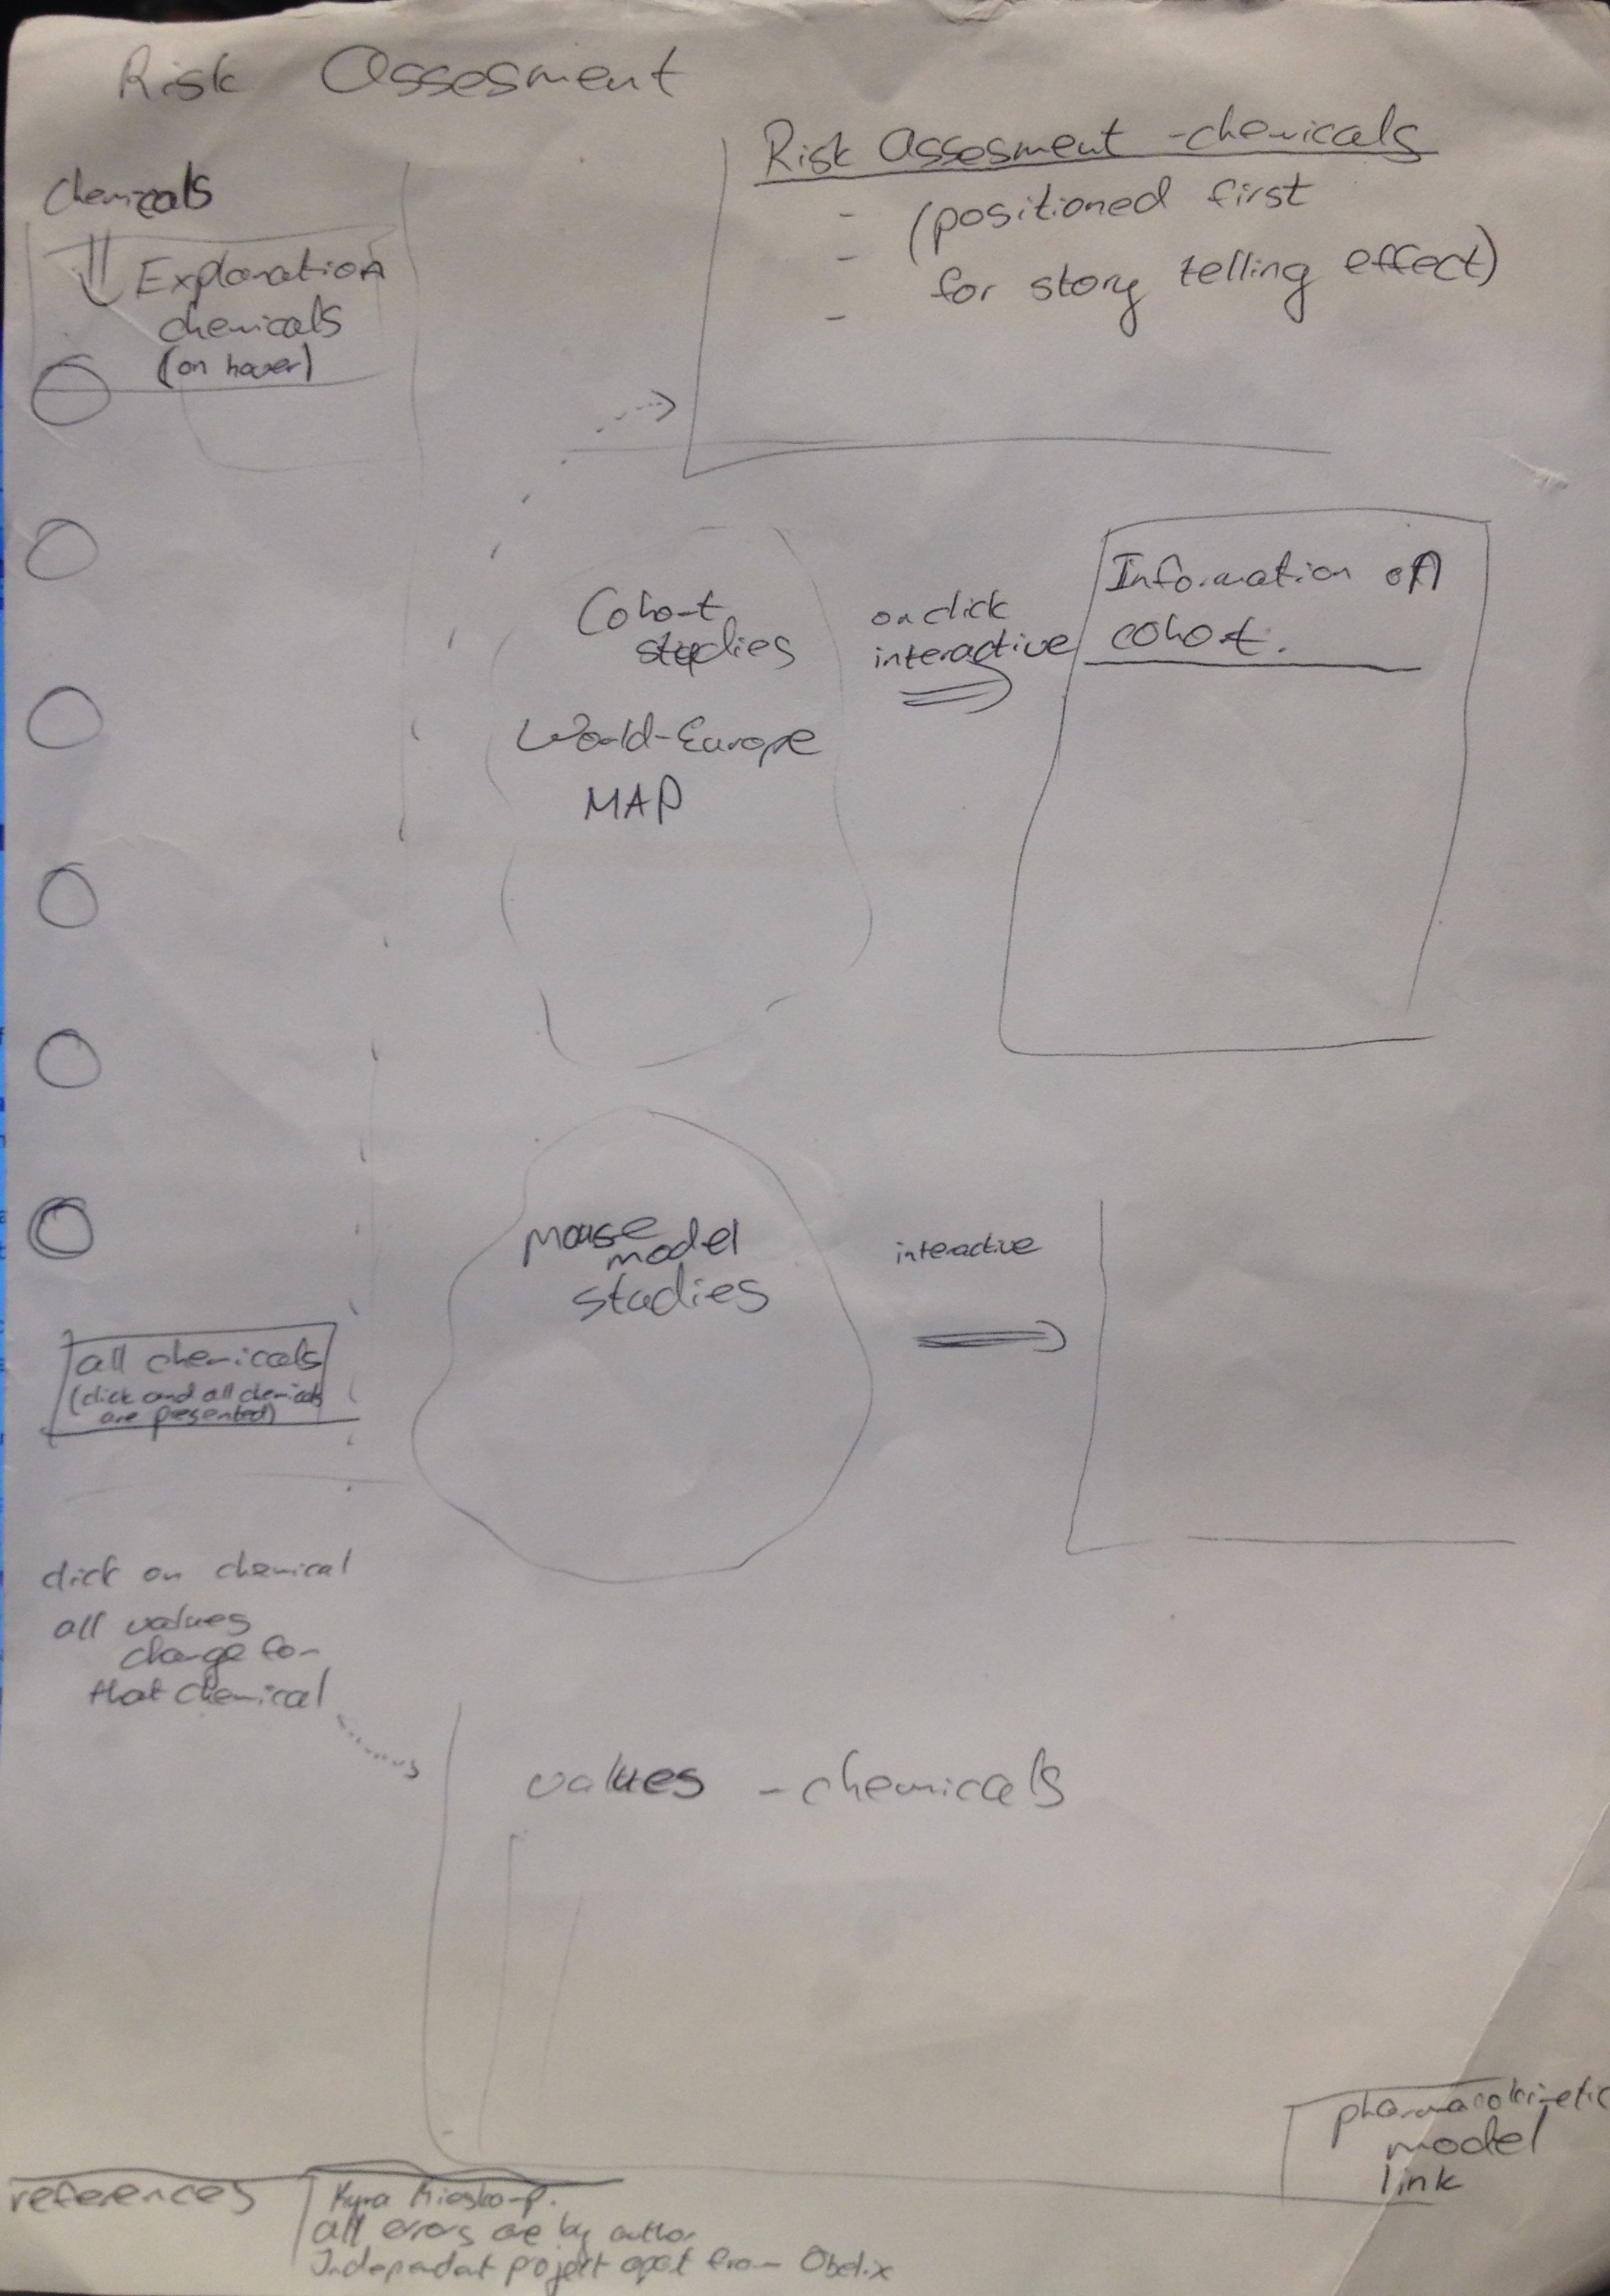 Risk Assesment
Chemicals
Explanation
chemicals
(on hover)
Risk Assesment -chemicals
- (positioned first
- for story telling effect)
-
Cohort
studies
World-Europe
MAP
on click
interactive
Information of
cohort.
mouse
model
studies
interactive
all chemicals
(click and all chemicals
are presented)
click on chemical
all values
change for
that chemical
values - chemicals
pharmacokinetic
model
link
references
Kyra
all errors are by author
Independat projekt apat from Obelix